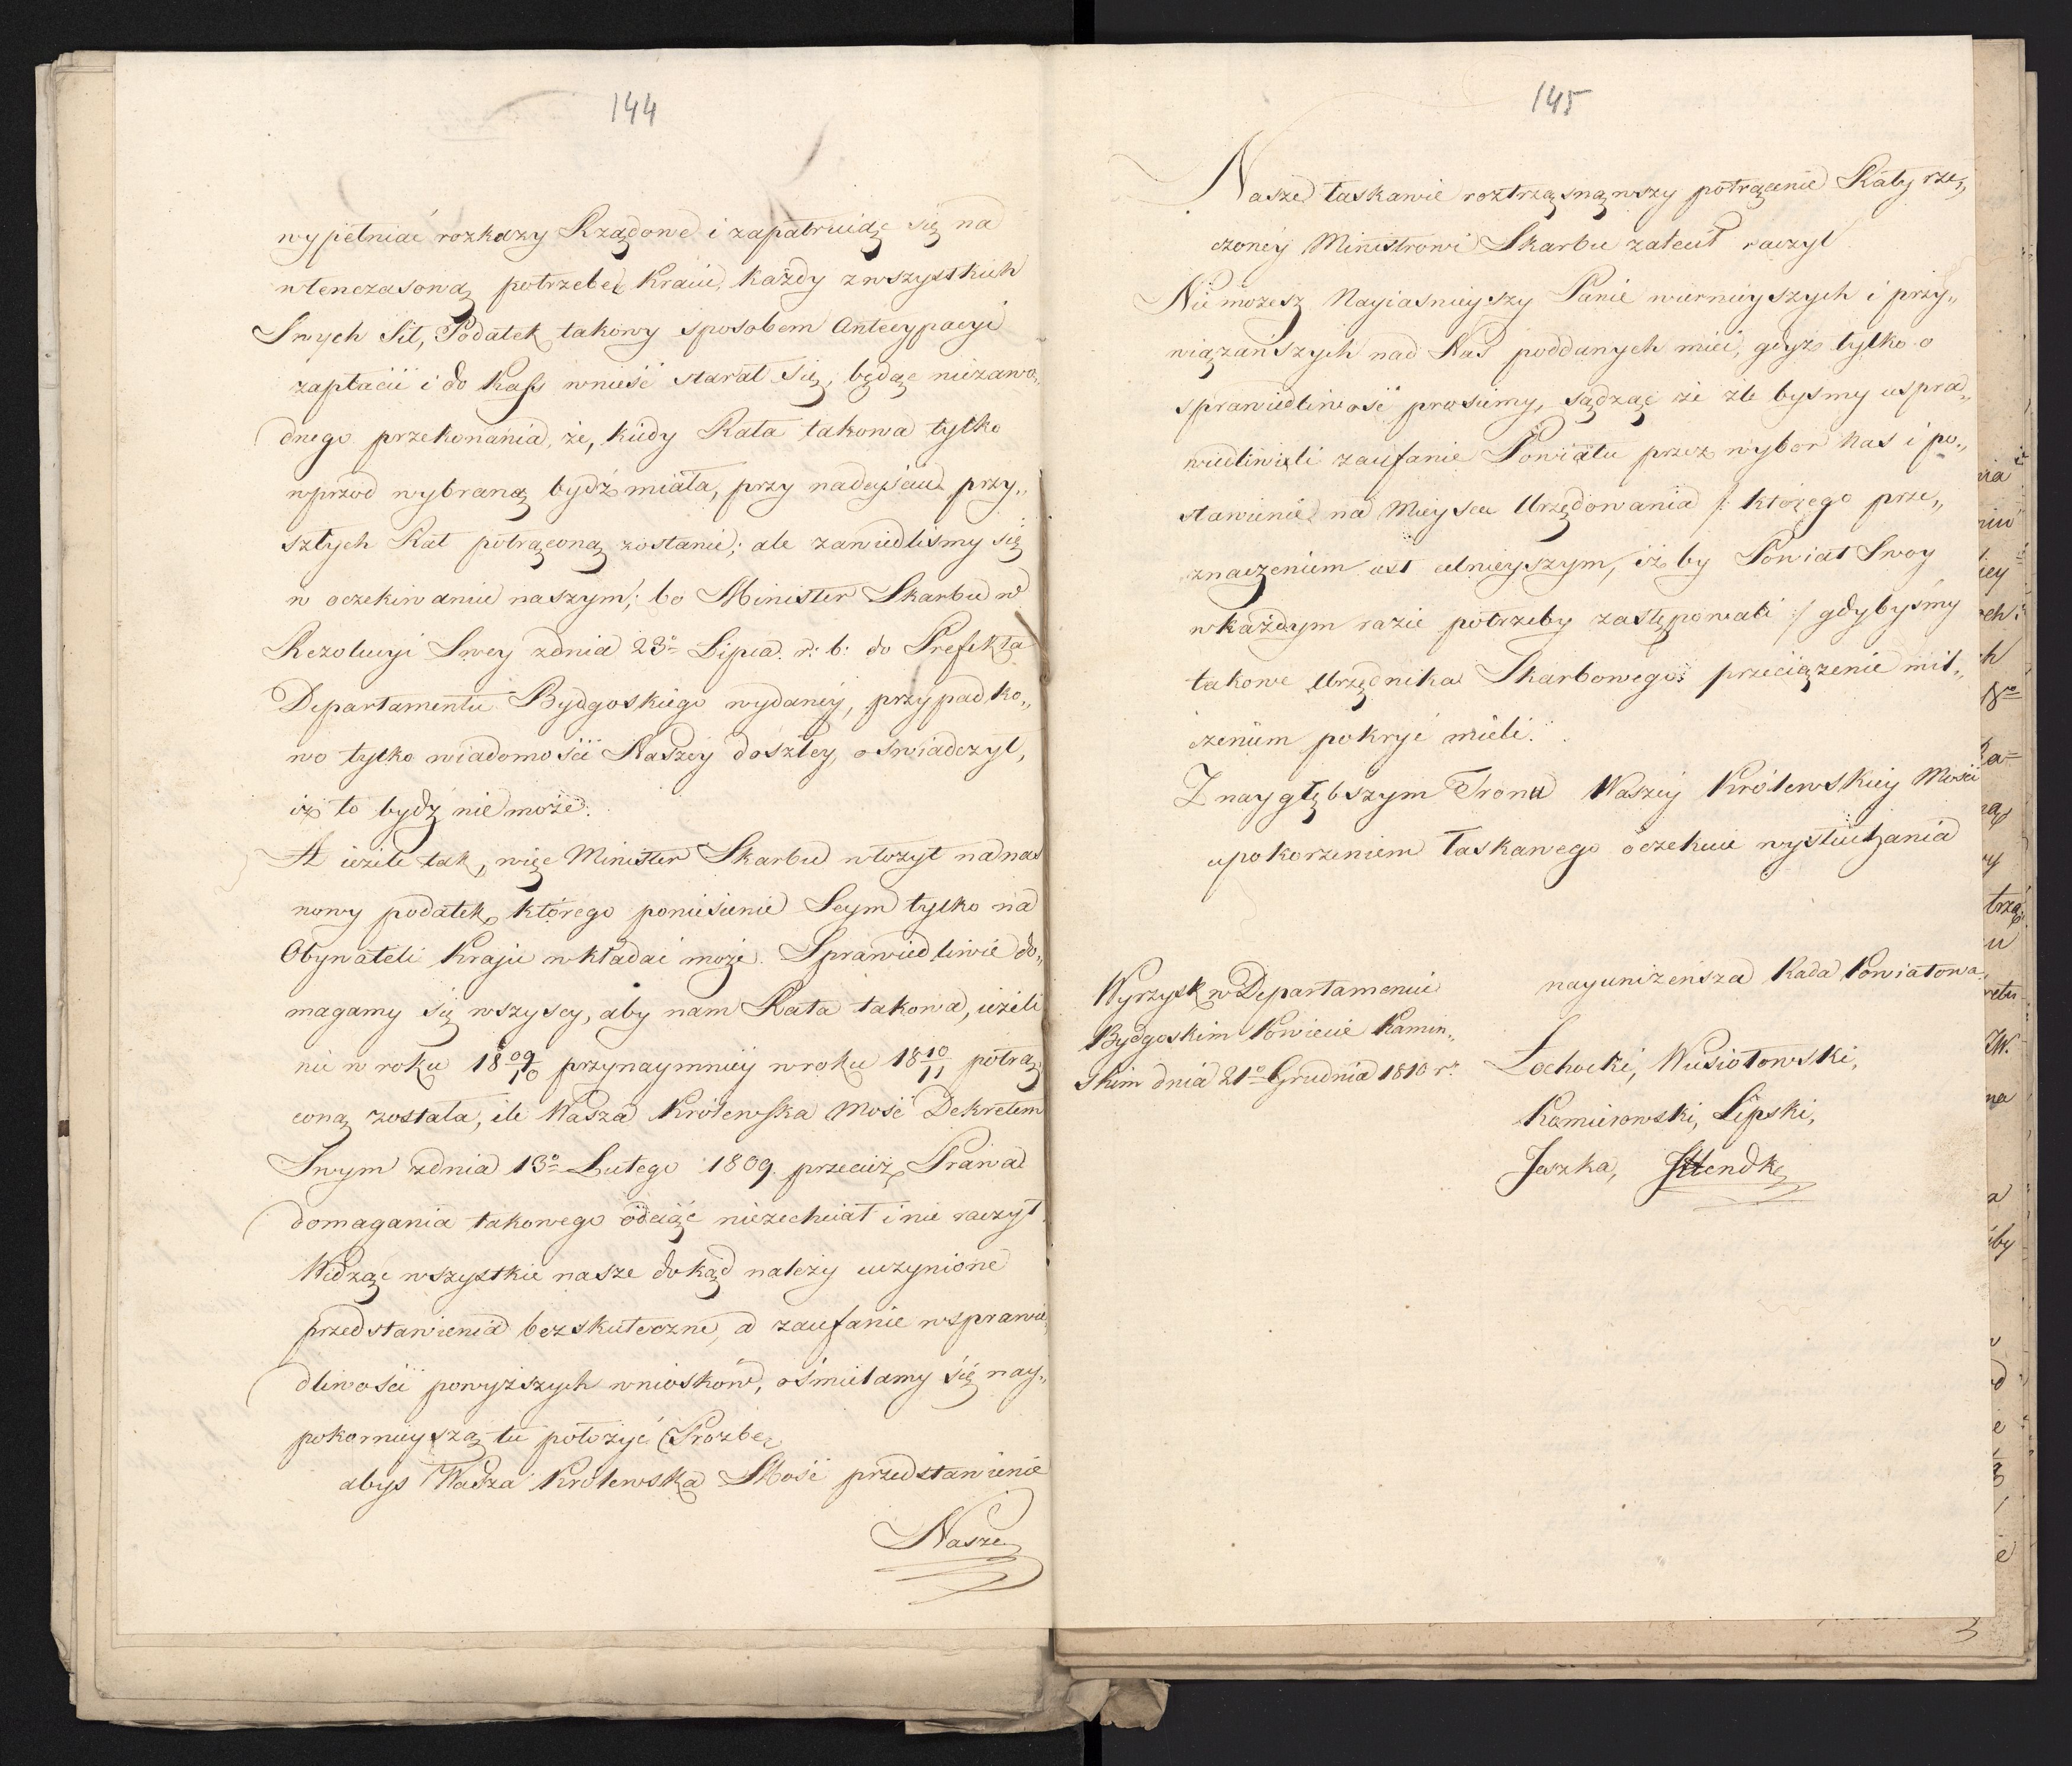 144
wypełniać rozkazy Rządowe i zapatruiąc się na
wtenczasową potrzebę Kraiu, każdy z wszystkich
Swych Sił, Podatek takowy sposobem Antecypacyi
zapłacić i do Kass wnieść starał się, będąc niezawo„
dnego przekonania, że, kiedy Rata takowa tylko
wprzod wybraną bydź miała, przy nadejściu przy„
szłych Rat potrąconą zostanie; ale zawiedliśmy się
w oczekiwaniu naszym; bo Minister Skarbu w
Rezolucyi Swey z dnia 23º Lipca r: b: do Prefekta
Departamentu Bydgoskiego wydaney, przypadko„
wo tylko wiadomości Naszey doszłey, oświadczył,
iż to bydź nie może.
A ieżeli tak, więc Minister Skarbu włożył na nas
nowy podatek, którego poniesienie Seym tylko na
Obywateli Kraju wkładać może. Sprawiedliwie do„
magamy się wszyscy, aby nam Rata takowa, ieżeli
nie w roku 18 09/10 przynaymniey w roku 18 10/11 potrą„
coną została, ile Wasza Królewska Mość Dekretem
Swym z dnia 13º Lutego 1809. przecież Prawa
domagania takowego odciąć niezechciał i nie raczył.
Widząc wszystkie nasze dokąd należy uczynione
przedstawienia bezskuteczne, a zaufanie w sprawie„
dliwości powyższych wniosków, ośmielamy się nay„
pokornieyszą tu położyć Prozbę
abyś Wasza Królewska Mość przedstawienie
Nasze
145
Nasze łaskawie roztrząsnąwszy potrącenie Raty rze„
czoney Ministrowi Skarbu zalecić raczył
Nie możesz Nayiaśnieyszy Panie wiernieyszych i przy„
wiązańszych nad Nas poddanych mieć, gdyż tylko o
sprawiedliwość prosiemy, sądząc że źle byśmy uspra„
wiedliwili zaufanie Powiatu przez wybor Nas i po„
stawienie na Mieyscu Urzędowania /: którego prze„
znaczeniem iest celnieyszym, iżby Powiat Swoy
w każdym razie potrzeby zastępowali :/ gdybyśmy
takowe Urzędnika Skarbowego przeciążenie mil„
czeniem pokryć mieli.
Z naygłębszym Tronu Waszey Królewskiey Mości
upokorzeniem łaskawego oczekuie wysłuchania
nayuniżeńsza Rada Powiatowa
Wyrzysk w Departamencie
Bydgoskim Powiecie Kamin„
skim dnia 21º Grudnia 1810 r.
Łochocki, Wiesiołowski,
Komierowski, Lipski,
Jeszka, Mendk